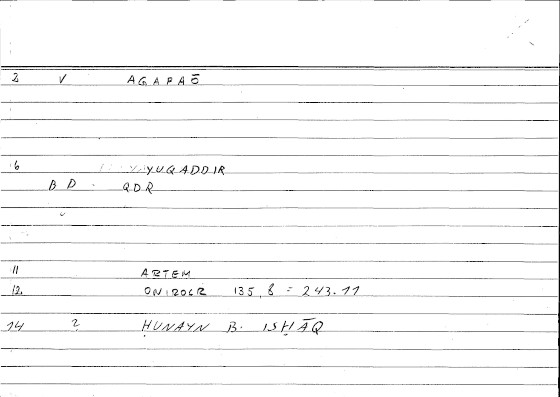 2 V AGAPAŌ
6 YUQADDIR
B D. QDR
11 ARTEM
12. ONIROCR 135,8 = 243.11
14 2 ḤUNAYN B. ISḤĀQ